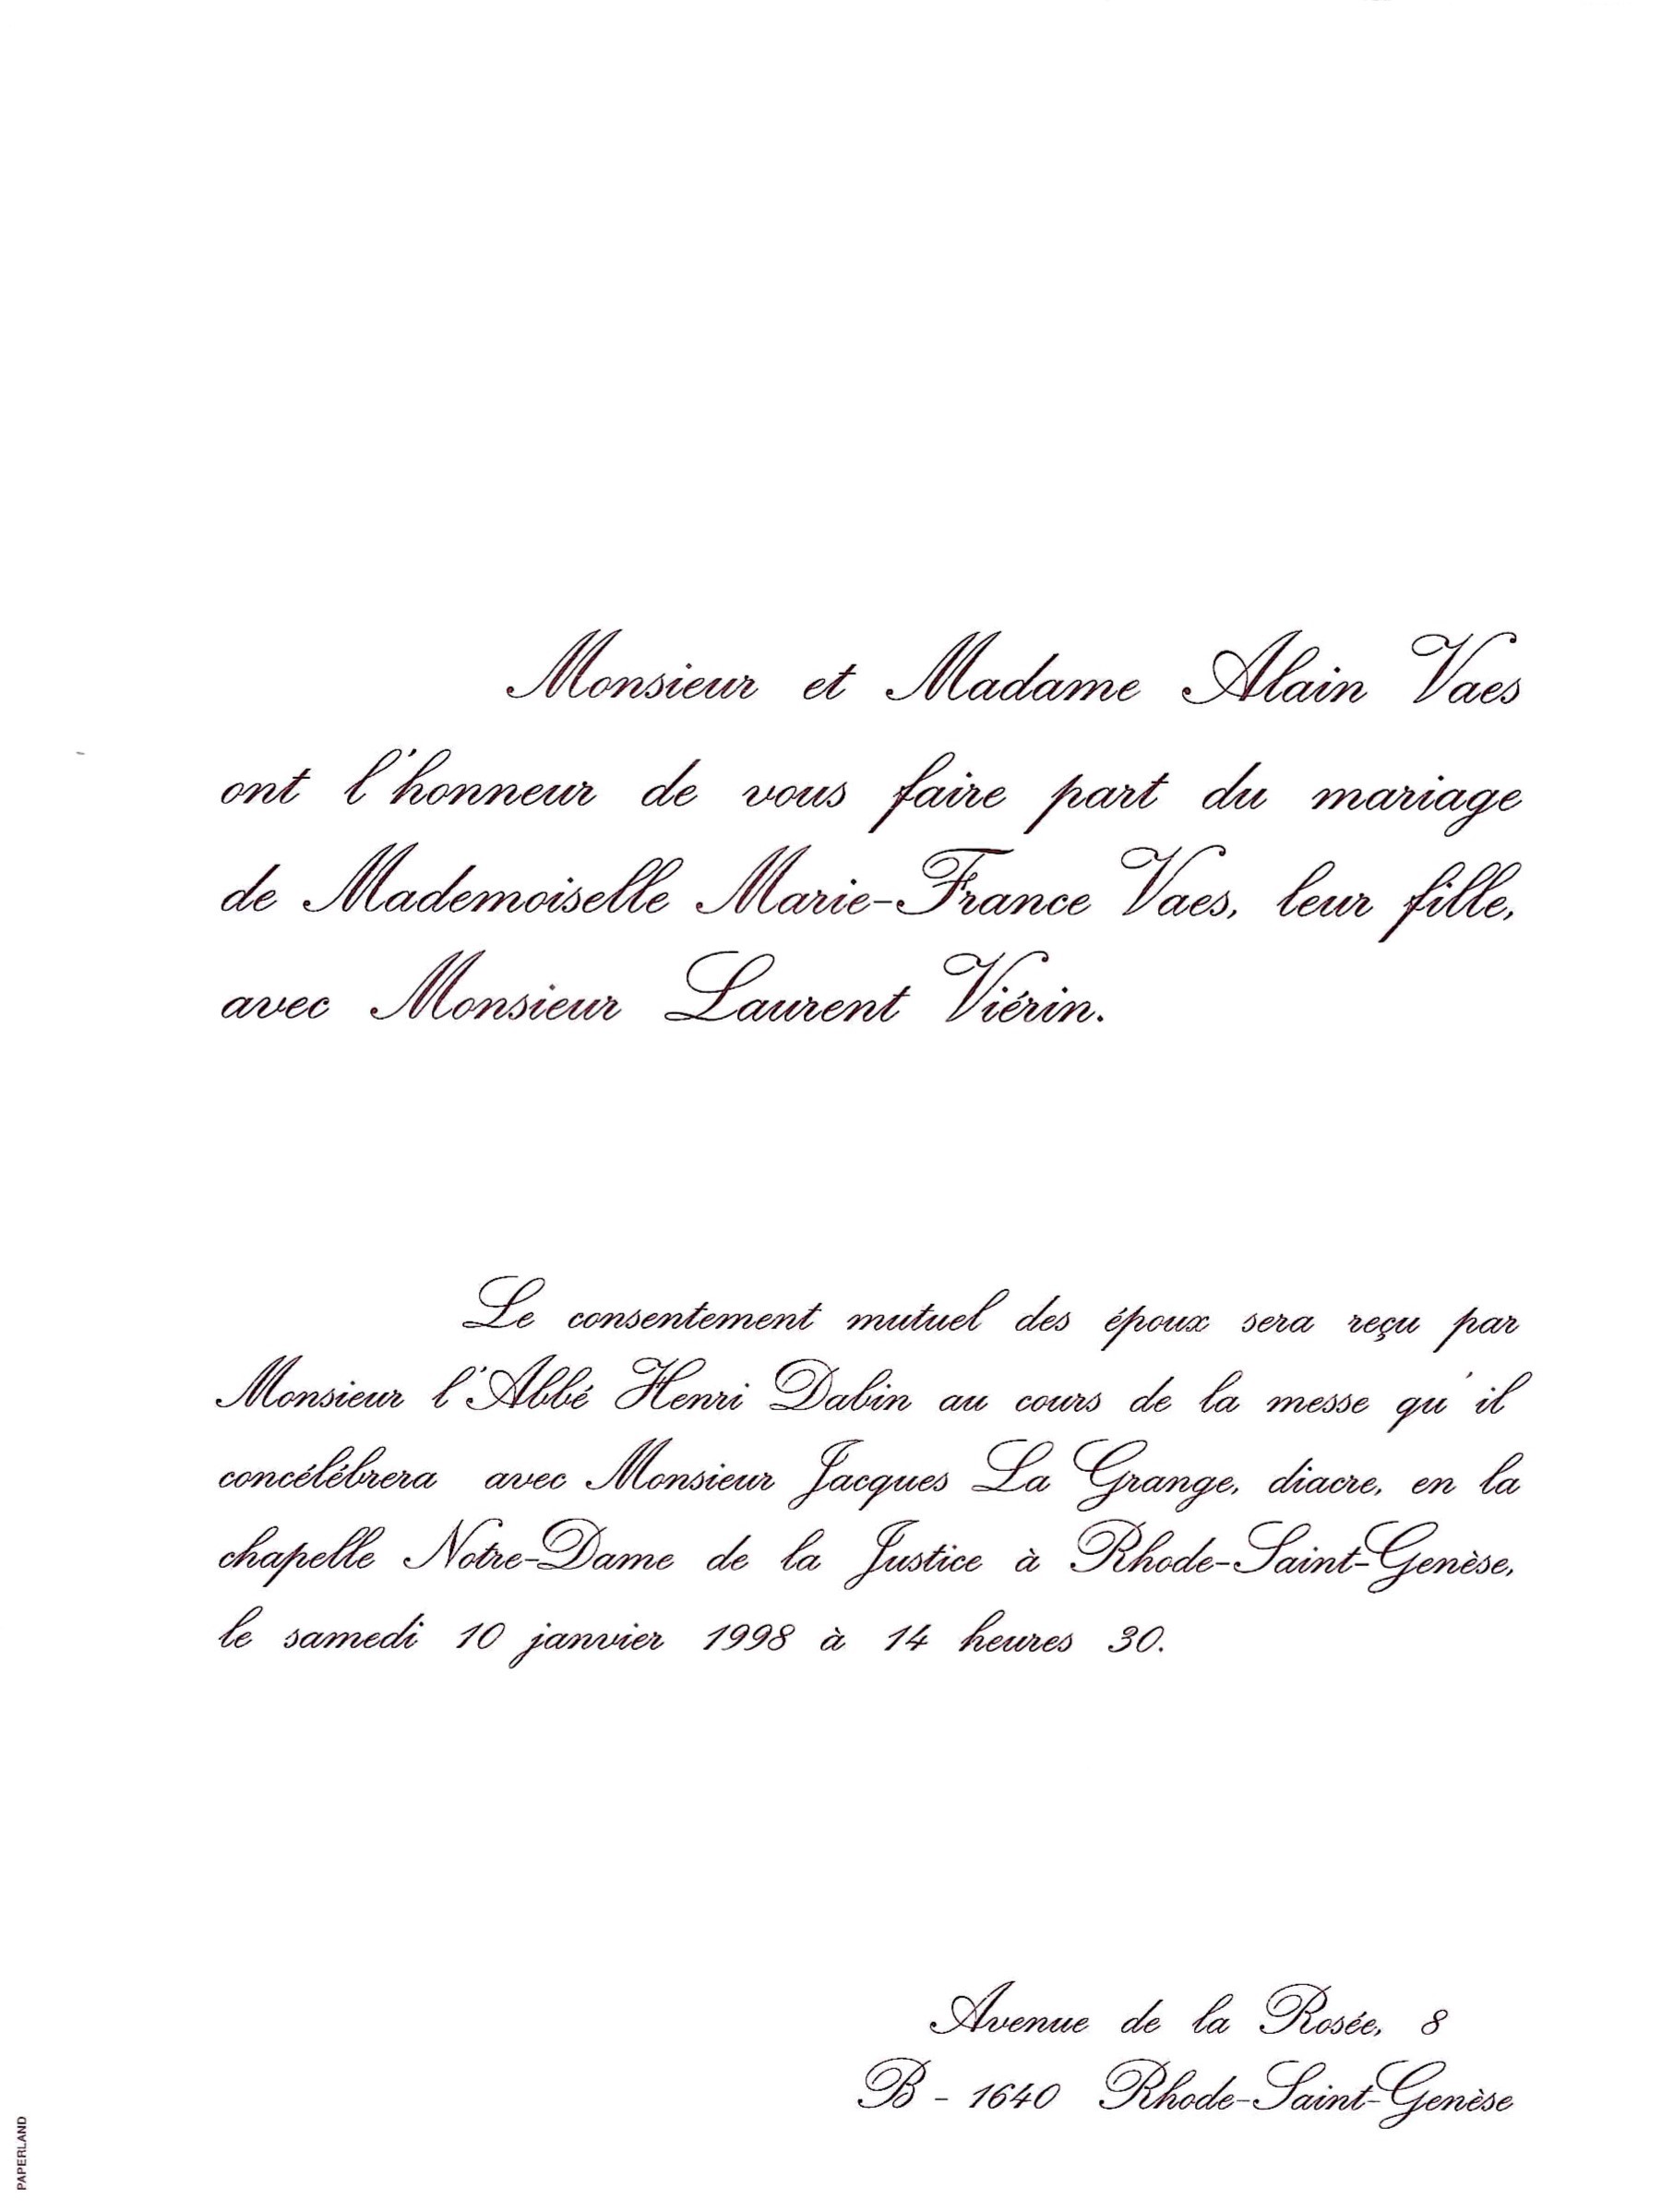 Monsieur et Madame Alain Vaes
ont l'honneur de vous faire part du mariage
de Mademoiselle Marie-France Vaes, leur fille,
avec Monsieur Laurent Viérin.
Le consentement mutuel des époux sera reçu par
Monsieur l'Abbé Henri Dabin au cours de la messe qu'il
concélébrera avec Monsieur Jacques La Grange, diacre, en la
chapelle Notre-Dame de la Justice à Rhode-Saint-Genèse,
le samedi 10 janvier 1998 à 14 heures 30.
Avenue de la Rosée, 8
B - 1640 Rhode-Saint-Genèse
PAPERLAND